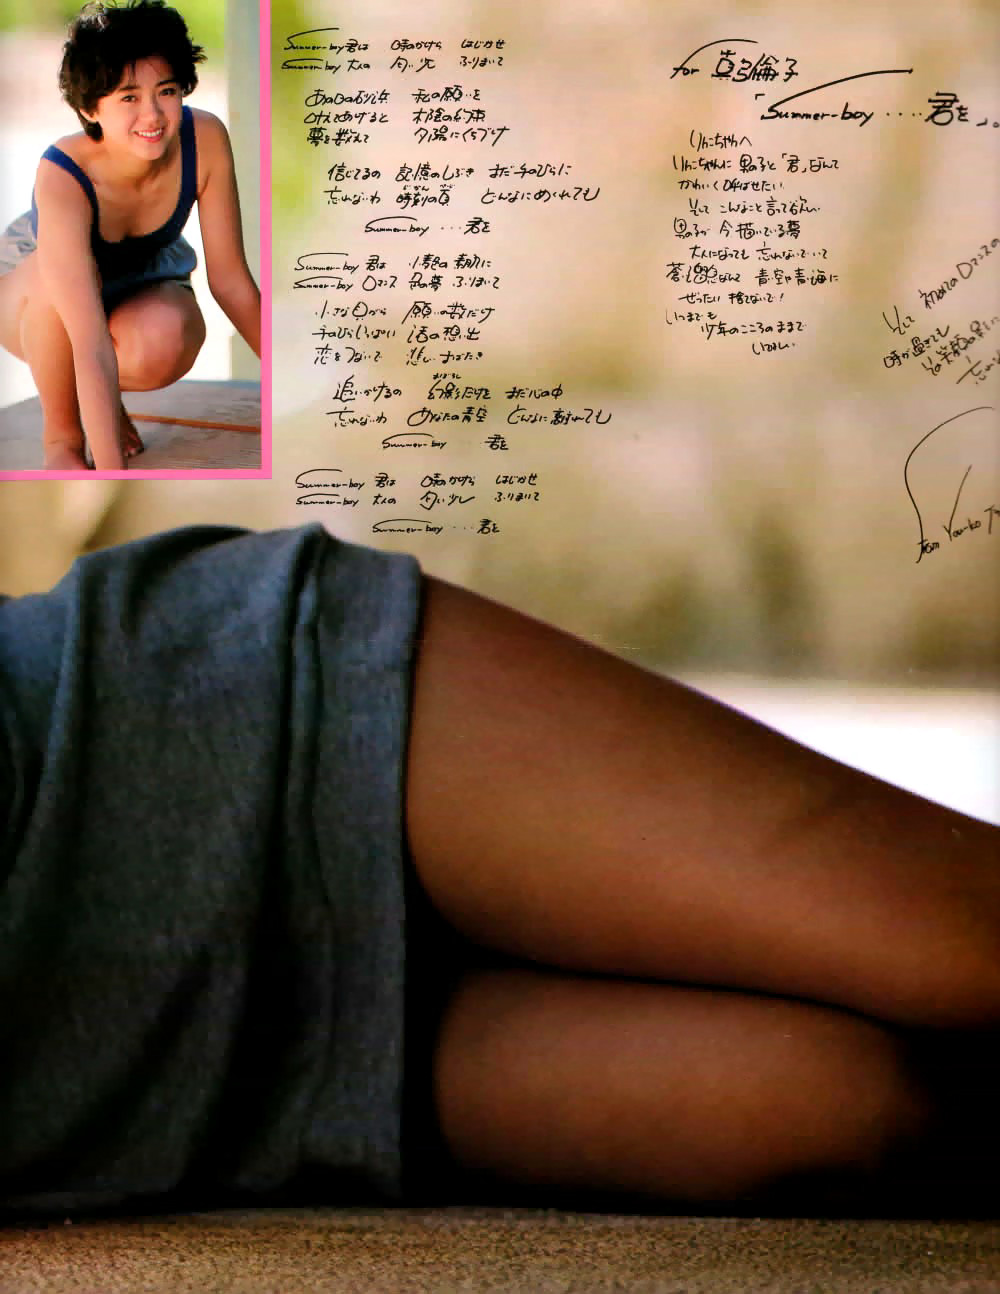 Summer-boy 君は 時のかけら はじかせ
Summer-boy 大人の 匂い少し ふりまいて
あの日の砂浜 私の願いを
叶えてあげると 木陰の約束
夢を教えて 夕陽にくちづけ
信じてるの 記憶のしぶき まだ手のひらに
忘れないわ 時刻の頁 どんなにめくれても
じかん
Summer-boy ・・・君を
Summer-boy 君は
Summer-boy ロマンス の夢 ふりまいて
小さな 願いの数だけ
手のひらいっぱい 渚の想い出
恋をつないで 悲し
追いかけるの 幻影だけを まだ心の中
まぼろし
忘れないわ あなたの青空 どんなに離れても
Summer-boy 君を
Summer-boy 君は 時のかけら はじかせ
Summer-boy 大人の 匂い少し ふりまいて
Summer-boy ・・・君を
for 真弓倫子
「Summer-boy ‥‥君を」。
りんこちゃんへ
りんこちゃんに 男の子を「君」なんて
かわいく呼ばせたい
そして こんなこと言って欲しい
男の子が 今 描いている夢
大人になっても 忘れないでいて
なんて 青い空や青い海に
ぜったい 捨てないで!
いつまでも
少年のこころのままで
いてねい
そして 初めてのロマンスの
時が過ぎても
忘れ
from You-ko